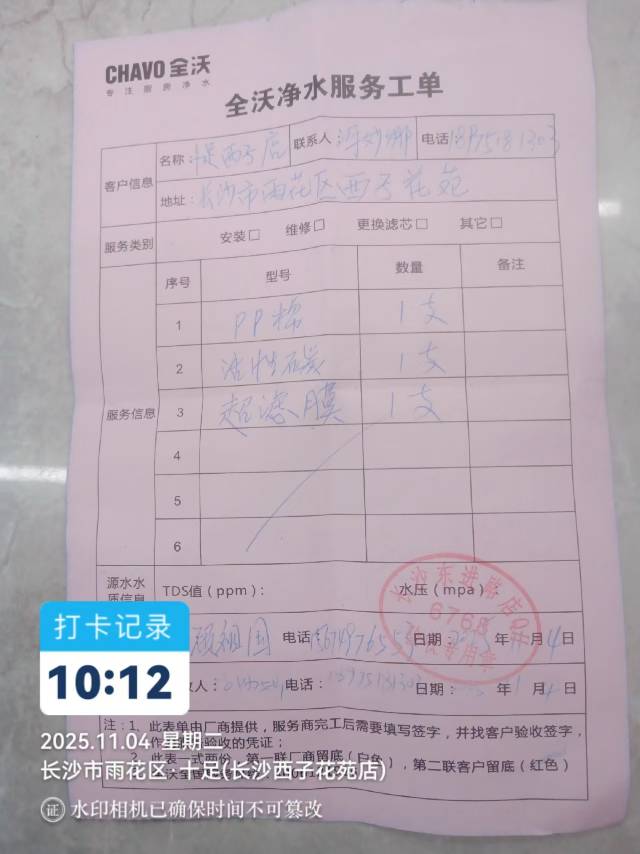 CHAVO 全沃
专注厨房净水
全沃净水服务工单
客户信息
名称: 西子店 联系人 电话
地址: 长沙市雨花区西子花苑
服务类别 安装□ 维修□ 更换滤芯□ 其它□
服务信息
序号 型号 数量 备注
1 PP棉 1支
2 活性碳 1支
3 超滤膜 1支
4
5
6
源水水
质信息 TDS值（ppm）: 水压（mpa）:
颜祖国 电话: 日期: 年 月 4日
收人: 电话: 日期: 年 月 日
注:1、此表单由厂商提供，服务商完工后需要填写签字，并找客户验收签字，
验收的凭证；
此表一式两份，第一联厂商留底(白色)，第二联客户留底（红色）
长沙东进
6768
专用章
打卡记录
10:12
2025.11.04 星期二
长沙市雨花区·十足(长沙西子花苑店)
证 水印相机已确保时间不可篡改